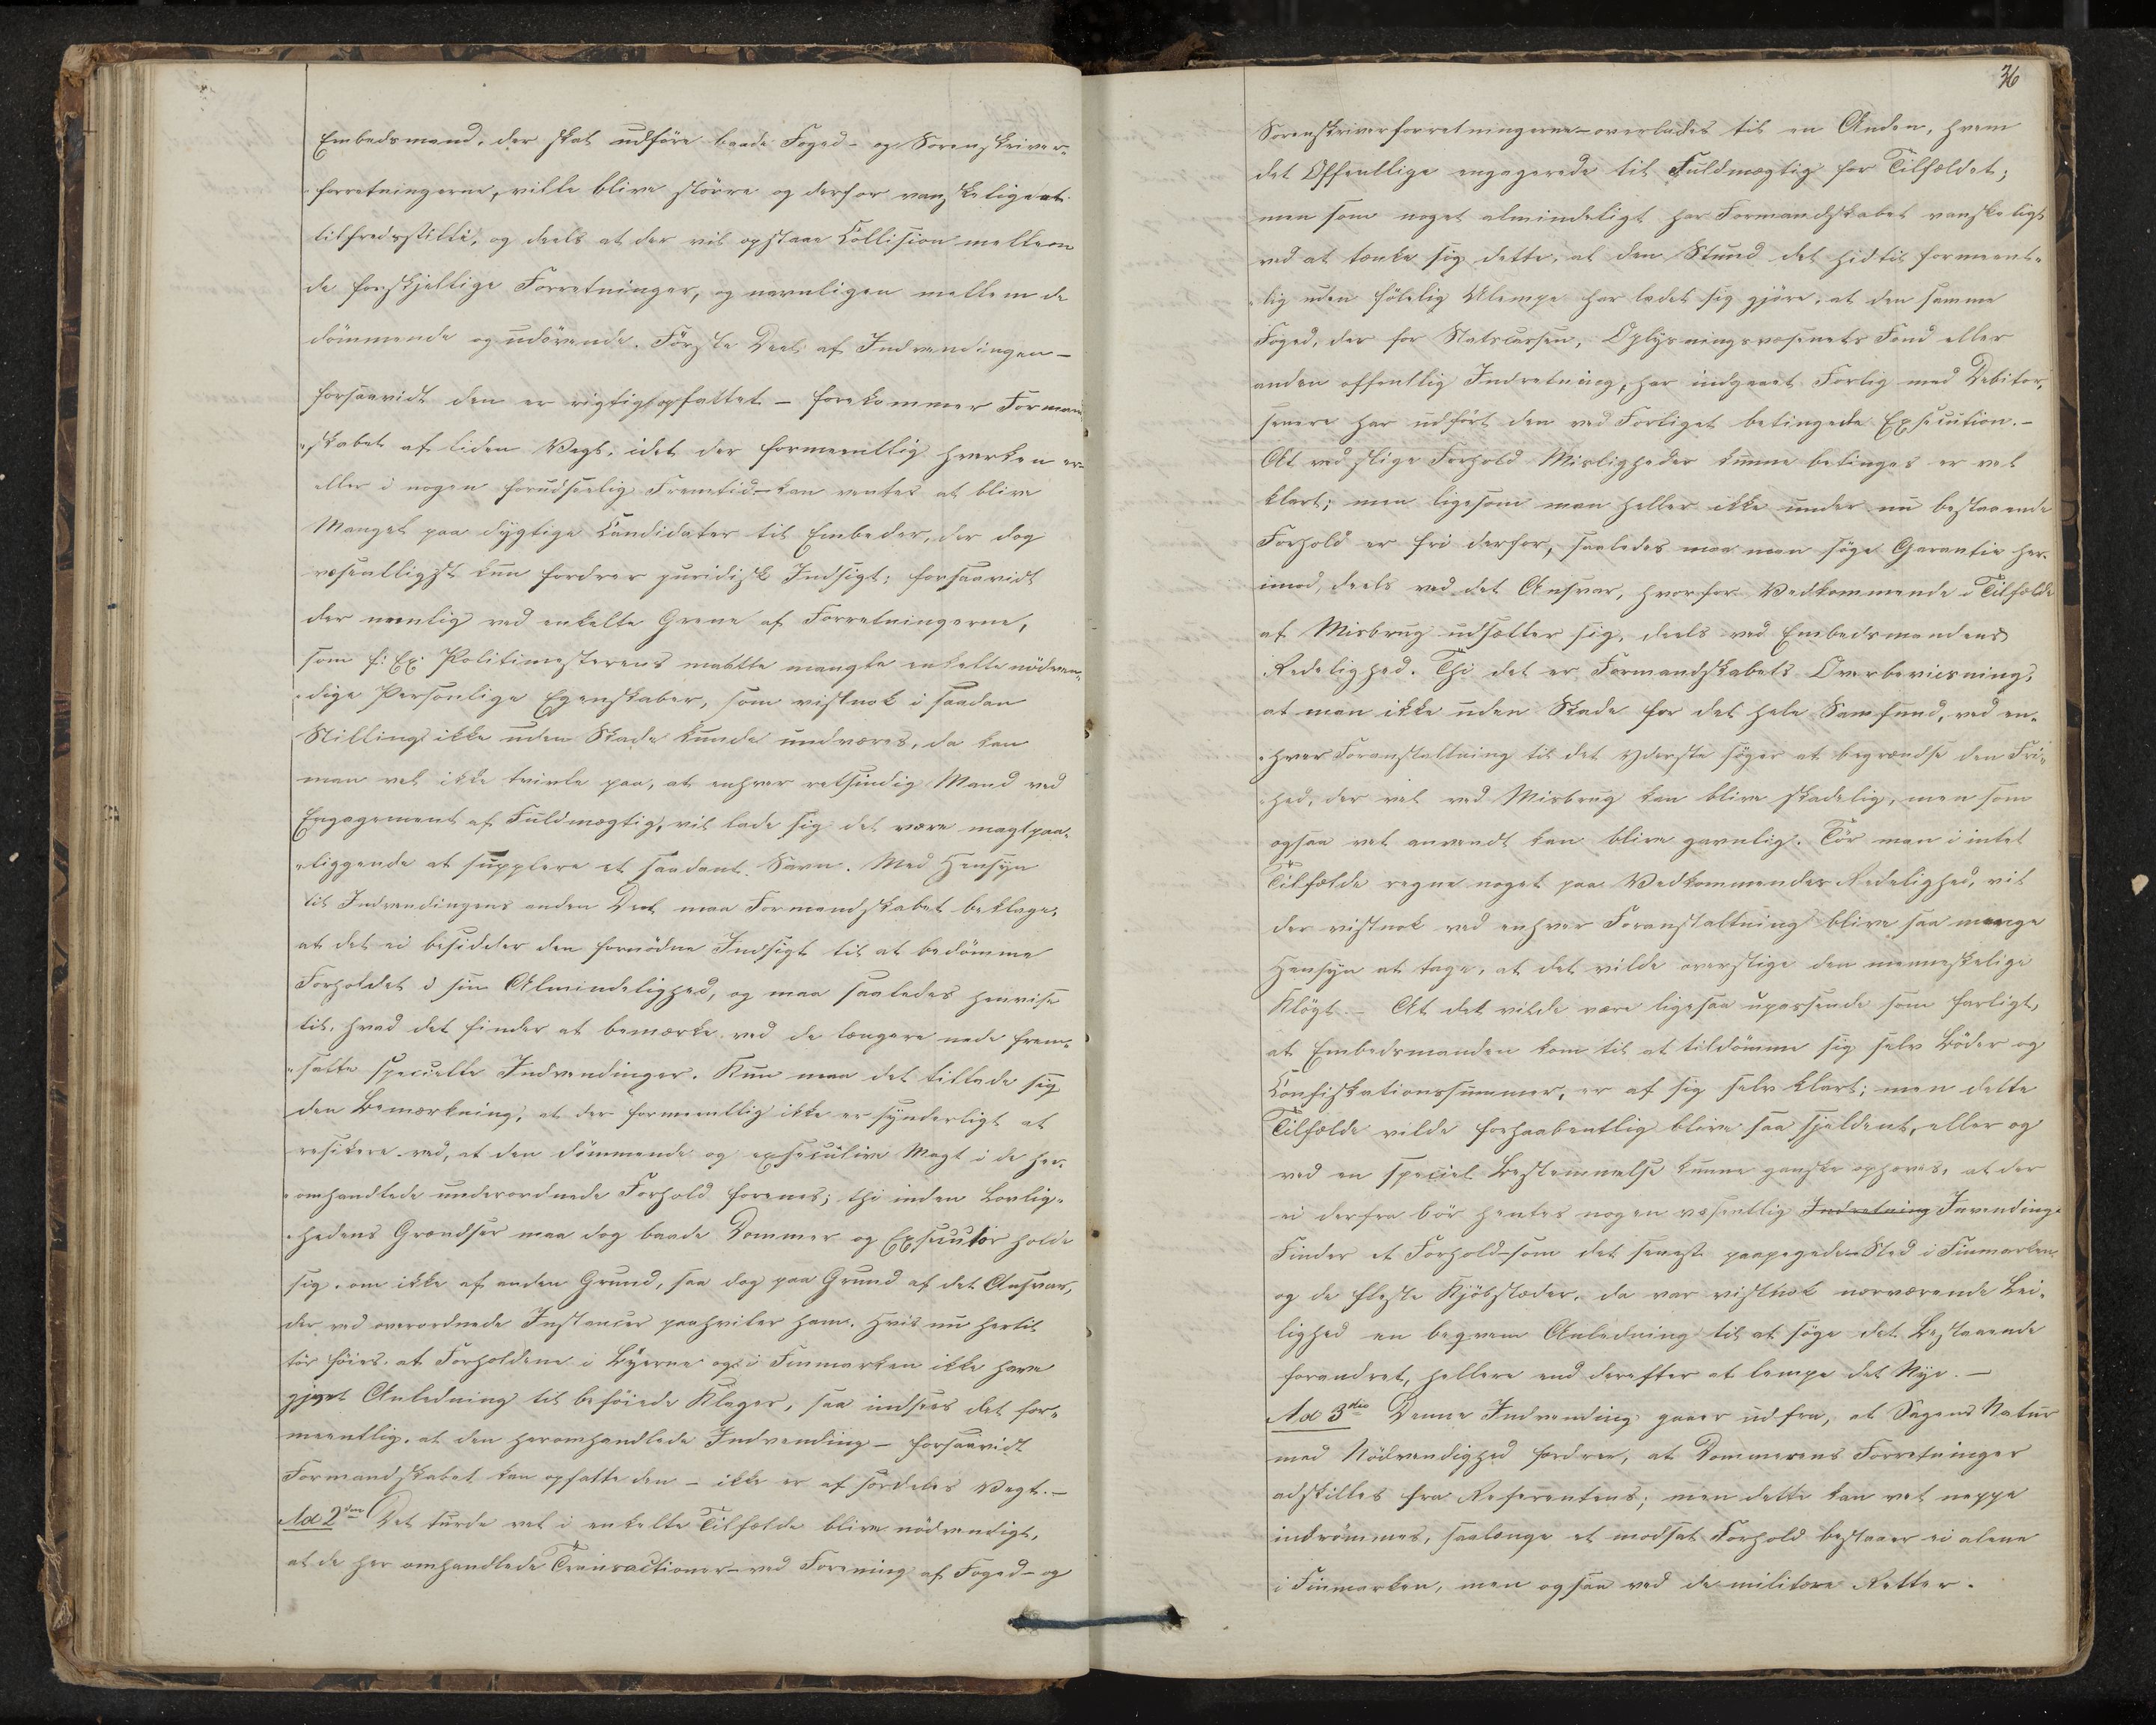 Embedsmand, der skal udføre baade Foged- og Sorenskriver-
forretningerne, ville blive større og derfor vanskeligere at
tilfredsstille, og deels at der vil opstaae Collision mellem
de forskjellige Forretninger, og navnligen mellem de
dømmende og udøvende. Første Deel af Indvendingen -
forsaavidt den er rigtig opfattet - forekommer Formand-
skabet af liden Vegt, idet der formeentlig hverken er -
eller i nogen forudseelig Fremtid - kan ventes at blive
Mangel paa dygtige Candidater til Embeder, der dog
væsentligst kun fordrer juridisk Indsigt; forsaavidt
der nemlig ved enkelte Grene af Forretningerne,
som f: Ex: Politimesterens maatte mangle enkelte nødven-
dige Personlige Egenskaber, som vistnok i saadan
Stilling ikke uden Skade kunde undværes, da kan
man vel ikke tvivle paa, at enhver retsindig Mand ved
Engagement af Fuldmægtig, vil lade sig det være magtpaa-
liggende at supplere et saadant Savn. Med Hensyn
til Indvendingens anden Deel maa Formandskabet beklage,
at det ei besidder den fornødne Indsigt til at bedømme
Forholdet i sin Almindelighed, og maa saaledes henvise
til, hvad det finder at bemærke ved de længere nede frem-
satte specielle Indvendinger. Kun maa det tillade sig
den Bemærkning, at der formeentlig ikke er synderligt at
resikere ved, at den dømmende og exsecutive Magt i de her-
omhandlede underordnede Forhold forenes; thi inden Lovlig-
hedens Grændser maa dog baade Dommer og Exsecutor holde
sig, om ikke af anden Grund, saa dog paa Grund af det Ansvar,
der ved overordnede Instancer paahviler ham. Hvis nu hertil
tør føies, at Forholdene i Byerne og i Finmarken ikke have
givet Anledning til beføiede Klager, saa indsees det for-
meentlig, at den heromhandlede Indvending - forsaavidt
Formandskabet kan opfatte den - ikke er af særdeles Vegt. -
Ad 2den Det turde vel i enkelte Tilfælde blive nødvendigt,
at de her omhandlede Transactioner - ved Forening af Foged- og
36
Sorenskriverforretningerne - overlades til en Anden, hvem
det Offentlige engagerede til Fuldmægtig for Tilfældet;
men som noget almindeligt har Formandskabet vanskeligt
ved at tænke sig dette, al den Stund det hidtil formeent-
lig uden følelig Ulempe har ladet sig gjøre, at den samme
Foged, der for Statscassen, Oplysningsvæsenets Fond eller
anden offentlig Indretning, har indgaaet Forlig med Debitor,
senere har udført den ved Forliget betingede Exsecution. -
At ved slige Forhold Misligheder kunne betinges er vel
klart; men ligesom man heller ikke under nu bestaaende
Forhold er fri derfor, saaledes maa man søge Garantie her-
imod, deels ved det Ansvar, hvorfor Vedkommende i Tilfælde
af Misbrug udsætter sig, deels ved Embedsmandens
Redelighed. Thi det er Formandskabets Overbeviisning,
at man ikke uden Skade for det hele Samfund, ved en-
hver Foranstaltning til det yderste søger at begrændse den Fri-
hed, der vel ved Misbrug kan blive skadelig, men som
ogsaa vel anvendt kan blive gavnlig. Tør man i intet
Tilfælde regne noget paa Vedkommendes Redelighed, vil
der vistnok ved enhver Foranstaltning blive saa mange
Hensyn at tage, at det vilde overstige den menneskelige
Kløgt. - At det vilde være ligesaa upassende som farligt,
at Embedsmanden kom til at tildømme sig selv Bøder og
Confiskationssummer, er af sig selv klart; men dette
Tilfælde vilde forhaabentlig blive saa sjeldent, eller og
ved en speciel Bestemmelse kunne ganske ophæves, at der
ei derfra bør hentes nogen væsentlig Indretning Invending.
Finder et Forhold - som det senest paapegede - Sted i Finmarken
og de fleste Kjøbstæder, da var vistnok nærværende Lei-
lighed en beqvem Anledning til at søge det Bestaaende
forandret, hellere end derefter at lempe det Nye. -
Ad 3die Denne Indvending gaaer ud fra, at Sagens Natur
med Nødvendighed fordrer, at Dommerens Forretninger
adskilles fra Referentens; men dette kan vel neppe
indrømmes, saalænge et modsat Forhold bestaaer ei alene
i Finmarken, men ogsaa ved de militære Retter.